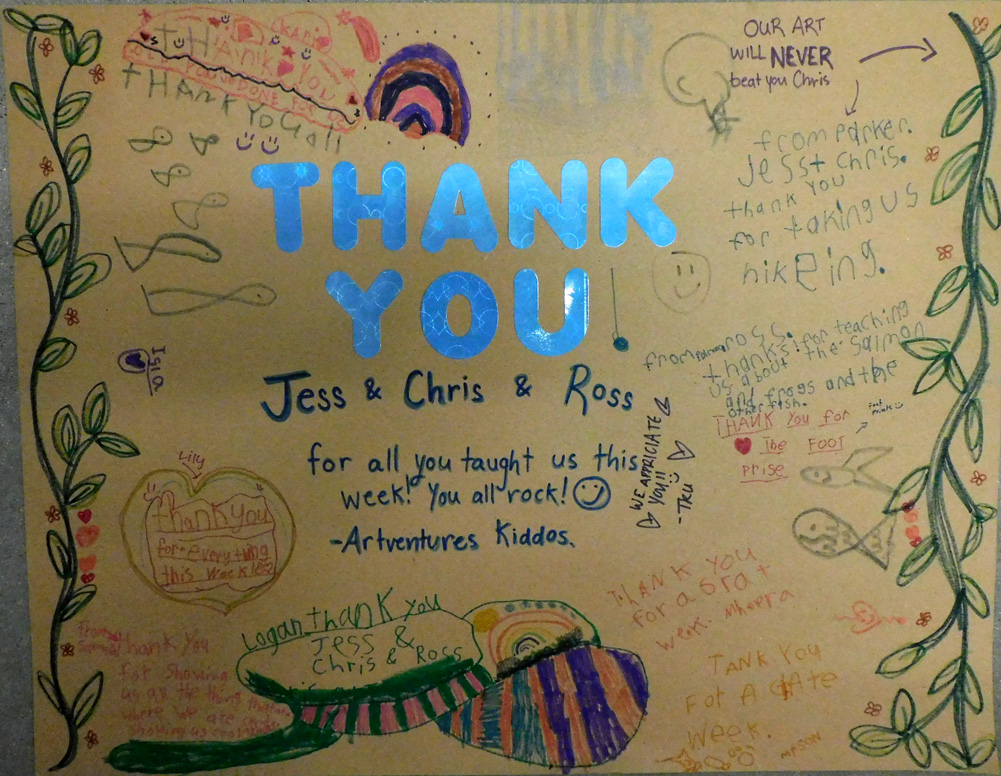 KAP
THANK YOU
DONE FOR
tHANk You all
OUR ART
WILL NEVER
beat you Chris
from parker.
Jess + chris.
thank you
for taking us
hikeing.
THANK
YOU!
Jess & Chris & Ross
for all you taught us this
week! You all rock!
-Artventures Kiddos.
Isla
from ross.
thanks for teaching
us about the salmon
and frogs and the
other fish.
WE APPRICIATE
YOU!!
-TKU
THANK You for
the FOOT
prise
Lily
thank you
for everything
this week!
Logan thank you
Jess &
Chris & Ross
THANK YOU
for a Grat
week. Meera
TANK YOU
FOr A GAte
Week.
MASON
from
thank You
for showing
us all the thing
where we are
showing us cool